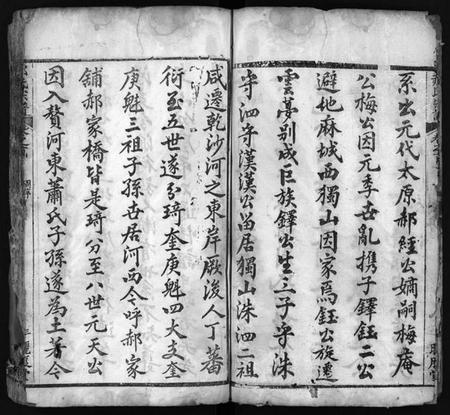 系出元代太原郝經公嫡嗣梅庵
公梅公因元季世亂携子鐸鈺二公
避地麻城西獨山因家焉鈺公旋遷
雲夢別成巨族鐸公生三子守洙
守泗守漢漢公畄居獨山洙泗二祖
咸遷乾沙河之東岸厥後人丁蕃
衍至五世遂分琦奎庚魁四大支奎
庚魁三祖子孫世居河西今呼郝家
鋪郝家橋皆是琦分至八世元天公
因入贅河東蕭氏子孫遂為土著今